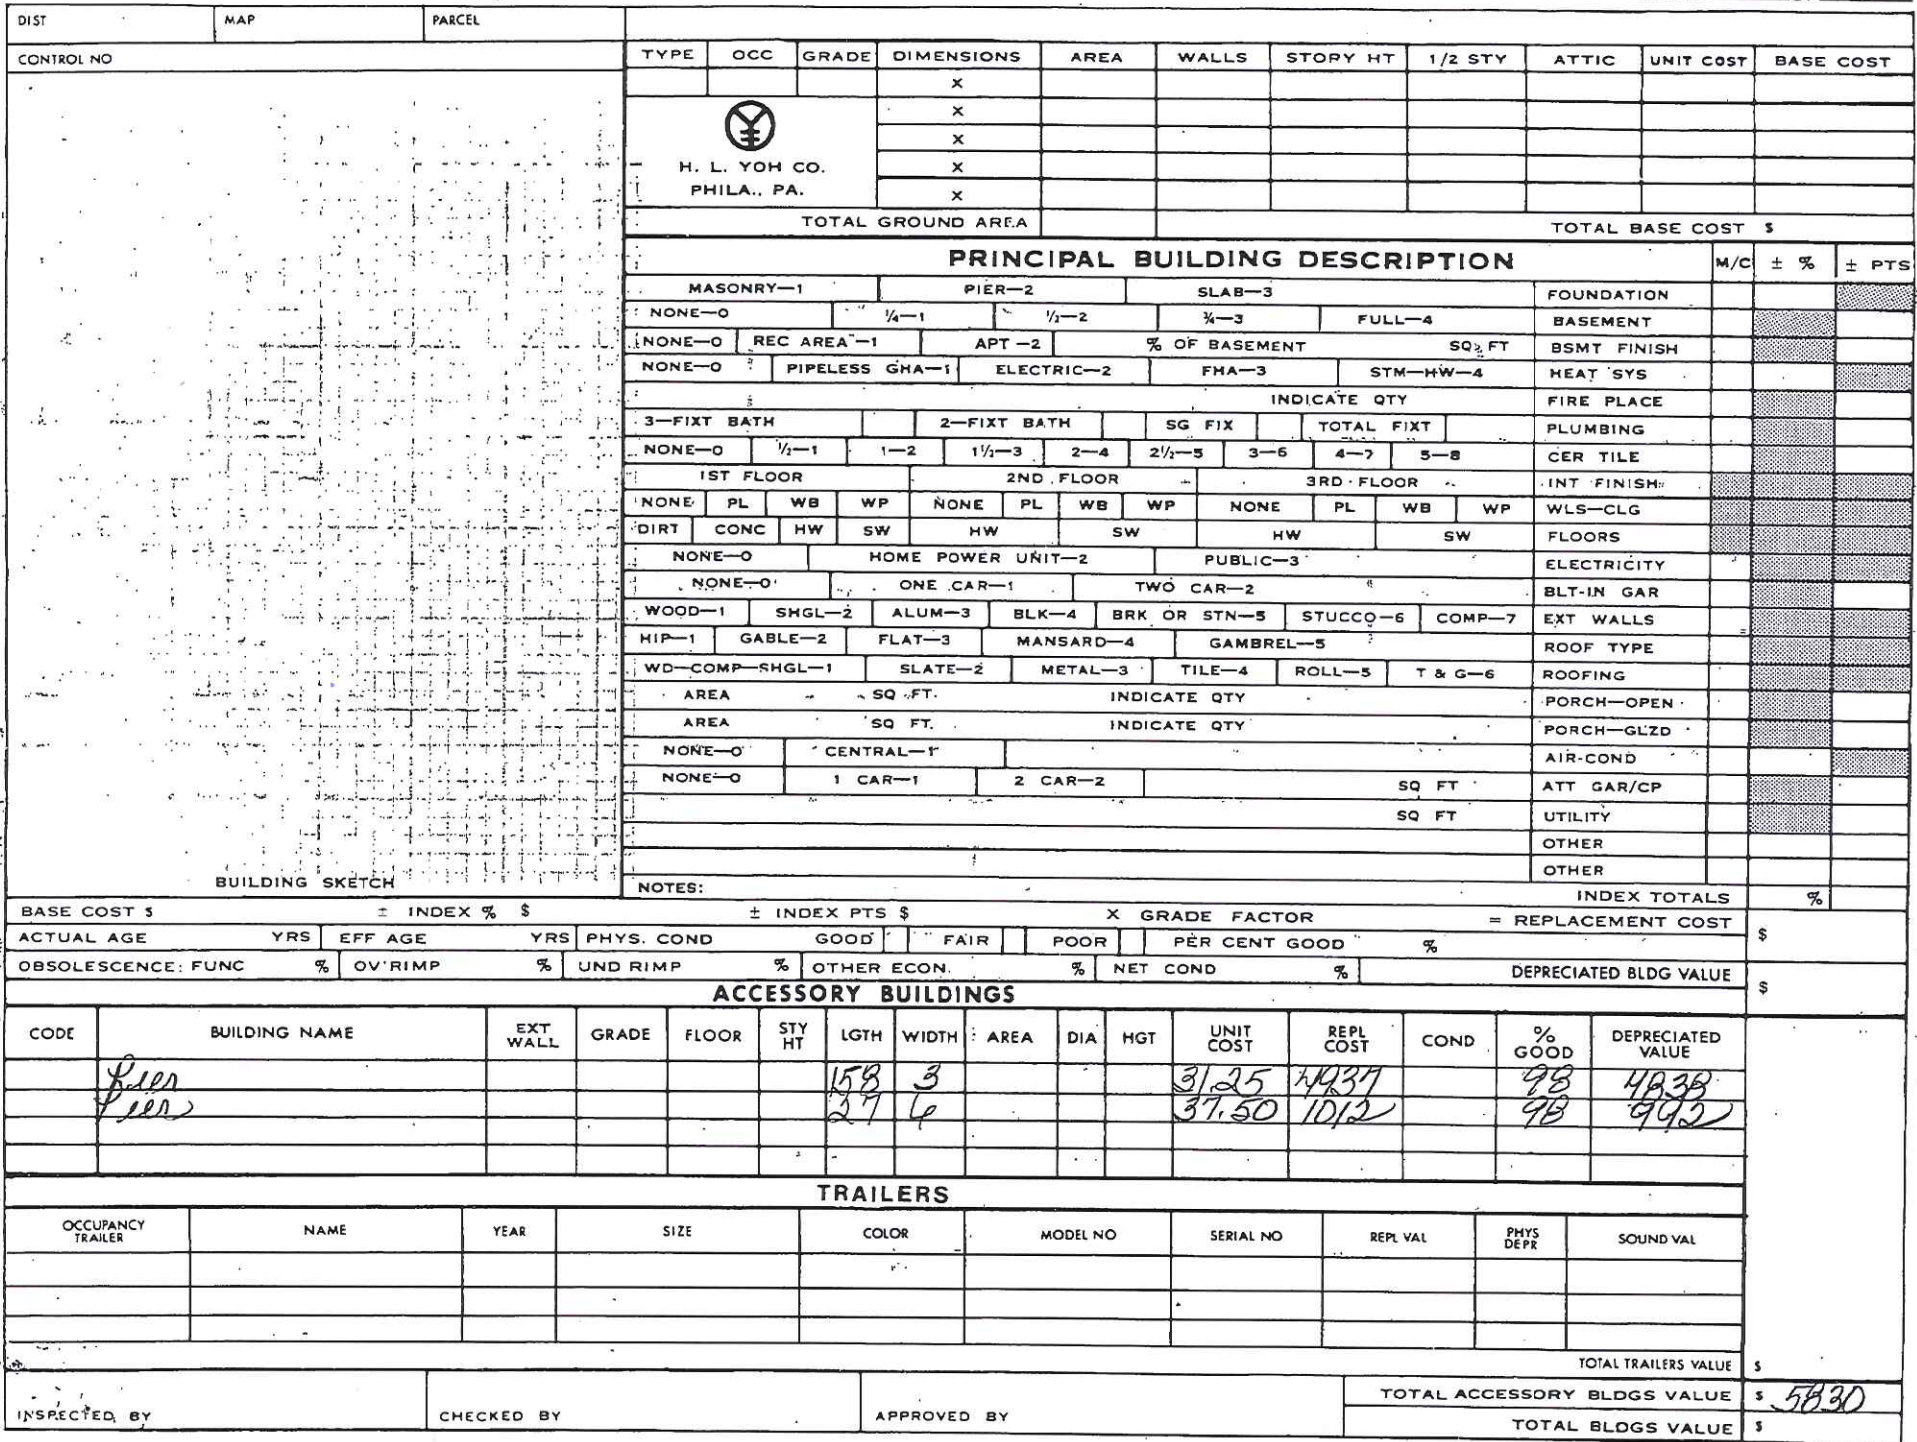 DIST MAP PARCEL
CONTROL NO
TYPE OCC GRADE DIMENSIONS AREA WALLS STORY HT 1/2 STY ATTIC UNIT COST BASE COST
X
X
X
X
X
H. L. YOH CO.
PHILA., PA.
TOTAL GROUND AREA TOTAL BASE COST $
PRINCIPAL BUILDING DESCRIPTION M/C ± % ± PTS
MASONRY—1 PIER—2 SLAB—3 FOUNDATION
NONE—0 ¼—1 ½—2 ¾—3 FULL—4 BASEMENT
NONE—0 REC AREA—1 APT—2 % OF BASEMENT SQ FT BSMT FINISH
NONE—0 PIPELESS GHA—1 ELECTRIC—2 FHA—3 STM—HW—4 HEAT SYS
INDICATE QTY FIRE PLACE
3—FIXT BATH 2—FIXT BATH SG FIX TOTAL FIXT PLUMBING
NONE—0 ½—1 1—2 1½—3 2—4 2½—5 3—6 4—7 5—8 CER TILE
1ST FLOOR 2ND FLOOR 3RD FLOOR INT FINISH
NONE PL WB WP NONE PL WB WP NONE PL WB WP WLS—CLG
DIRT CONC HW SW HW SW HW SW FLOORS
NONE—0 HOME POWER UNIT—2 PUBLIC—3 ELECTRICITY
NONE—0 ONE CAR—1 TWO CAR—2 BLT-IN GAR
WOOD—1 SHGL—2 ALUM—3 BLK—4 BRK OR STN—5 STUCCO—6 COMP—7 EXT WALLS
HIP—1 GABLE—2 FLAT—3 MANSARD—4 GAMBREL—5 ROOF TYPE
WD—COMP—SHGL—1 SLATE—2 METAL—3 TILE—4 ROLL—5 T & G—6 ROOFING
AREA SQ FT. INDICATE QTY PORCH—OPEN
AREA SQ FT. INDICATE QTY PORCH—GLZD
NONE—0 CENTRAL—1 AIR-COND
NONE—0 1 CAR—1 2 CAR—2 SQ FT ATT GAR/CP
SQ FT UTILITY
OTHER
OTHER
BUILDING SKETCH
NOTES: INDEX TOTALS %
BASE COST $ ± INDEX % $ ± INDEX PTS $ X GRADE FACTOR = REPLACEMENT COST $
ACTUAL AGE YRS EFF AGE YRS PHYS. COND GOOD FAIR POOR PER CENT GOOD %
OBSOLESCENCE: FUNC % OV'RIMP % UND RIMP % OTHER ECON. % NET COND % DEPRECIATED BLDG VALUE $
ACCESSORY BUILDINGS
CODE BUILDING NAME EXT WALL GRADE FLOOR STY HT LGTH WIDTH AREA DIA HGT UNIT COST REPL COST COND % GOOD DEPRECIATED VALUE
Pier 158 3 31.25 4937 98 4838
Pier 27 6 37.50 1012 98 992
TRAILERS
OCCUPANCY TRAILER NAME YEAR SIZE COLOR MODEL NO SERIAL NO REPL VAL PHYS DEPR SOUND VAL
TOTAL TRAILERS VALUE $
TOTAL ACCESSORY BLDGS VALUE $ 5830
INSPECTED BY CHECKED BY APPROVED BY
TOTAL BLDGS VALUE $